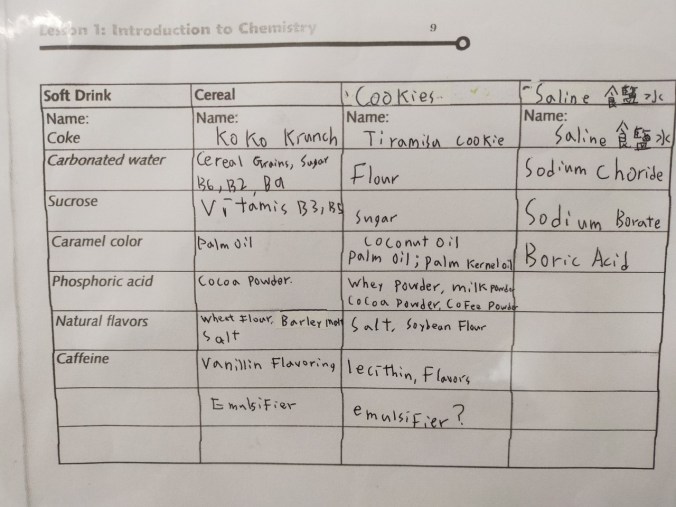 Lesson 1: Introduction to Chemistry 9
Soft Drink Cereal Cookies Saline 食鹽水
Name: Name: Name: Name:
Coke Ko Ko Krunch Tiramisu cookie Saline 食鹽水
Carbonated water Cereal Grains, Sugar Flour Sodium Choride
B6, B2, B9
Sucrose Vitamis B3, B5 Sugar Sodium Borate
Caramel color Palm Oil Coconut Oil Boric Acid
Palm Oil; Palm Kernel oil
Phosphoric acid Cocoa Powder. Whey Powder, milk powder
Cocoa Powder, Cofee Powder
Natural flavors Wheat Flour, Barley Malt Salt, Soybean Flour
Salt
Caffeine Vanillin Flavoring lecithin, Flavors
Emulsifier emulsifier?